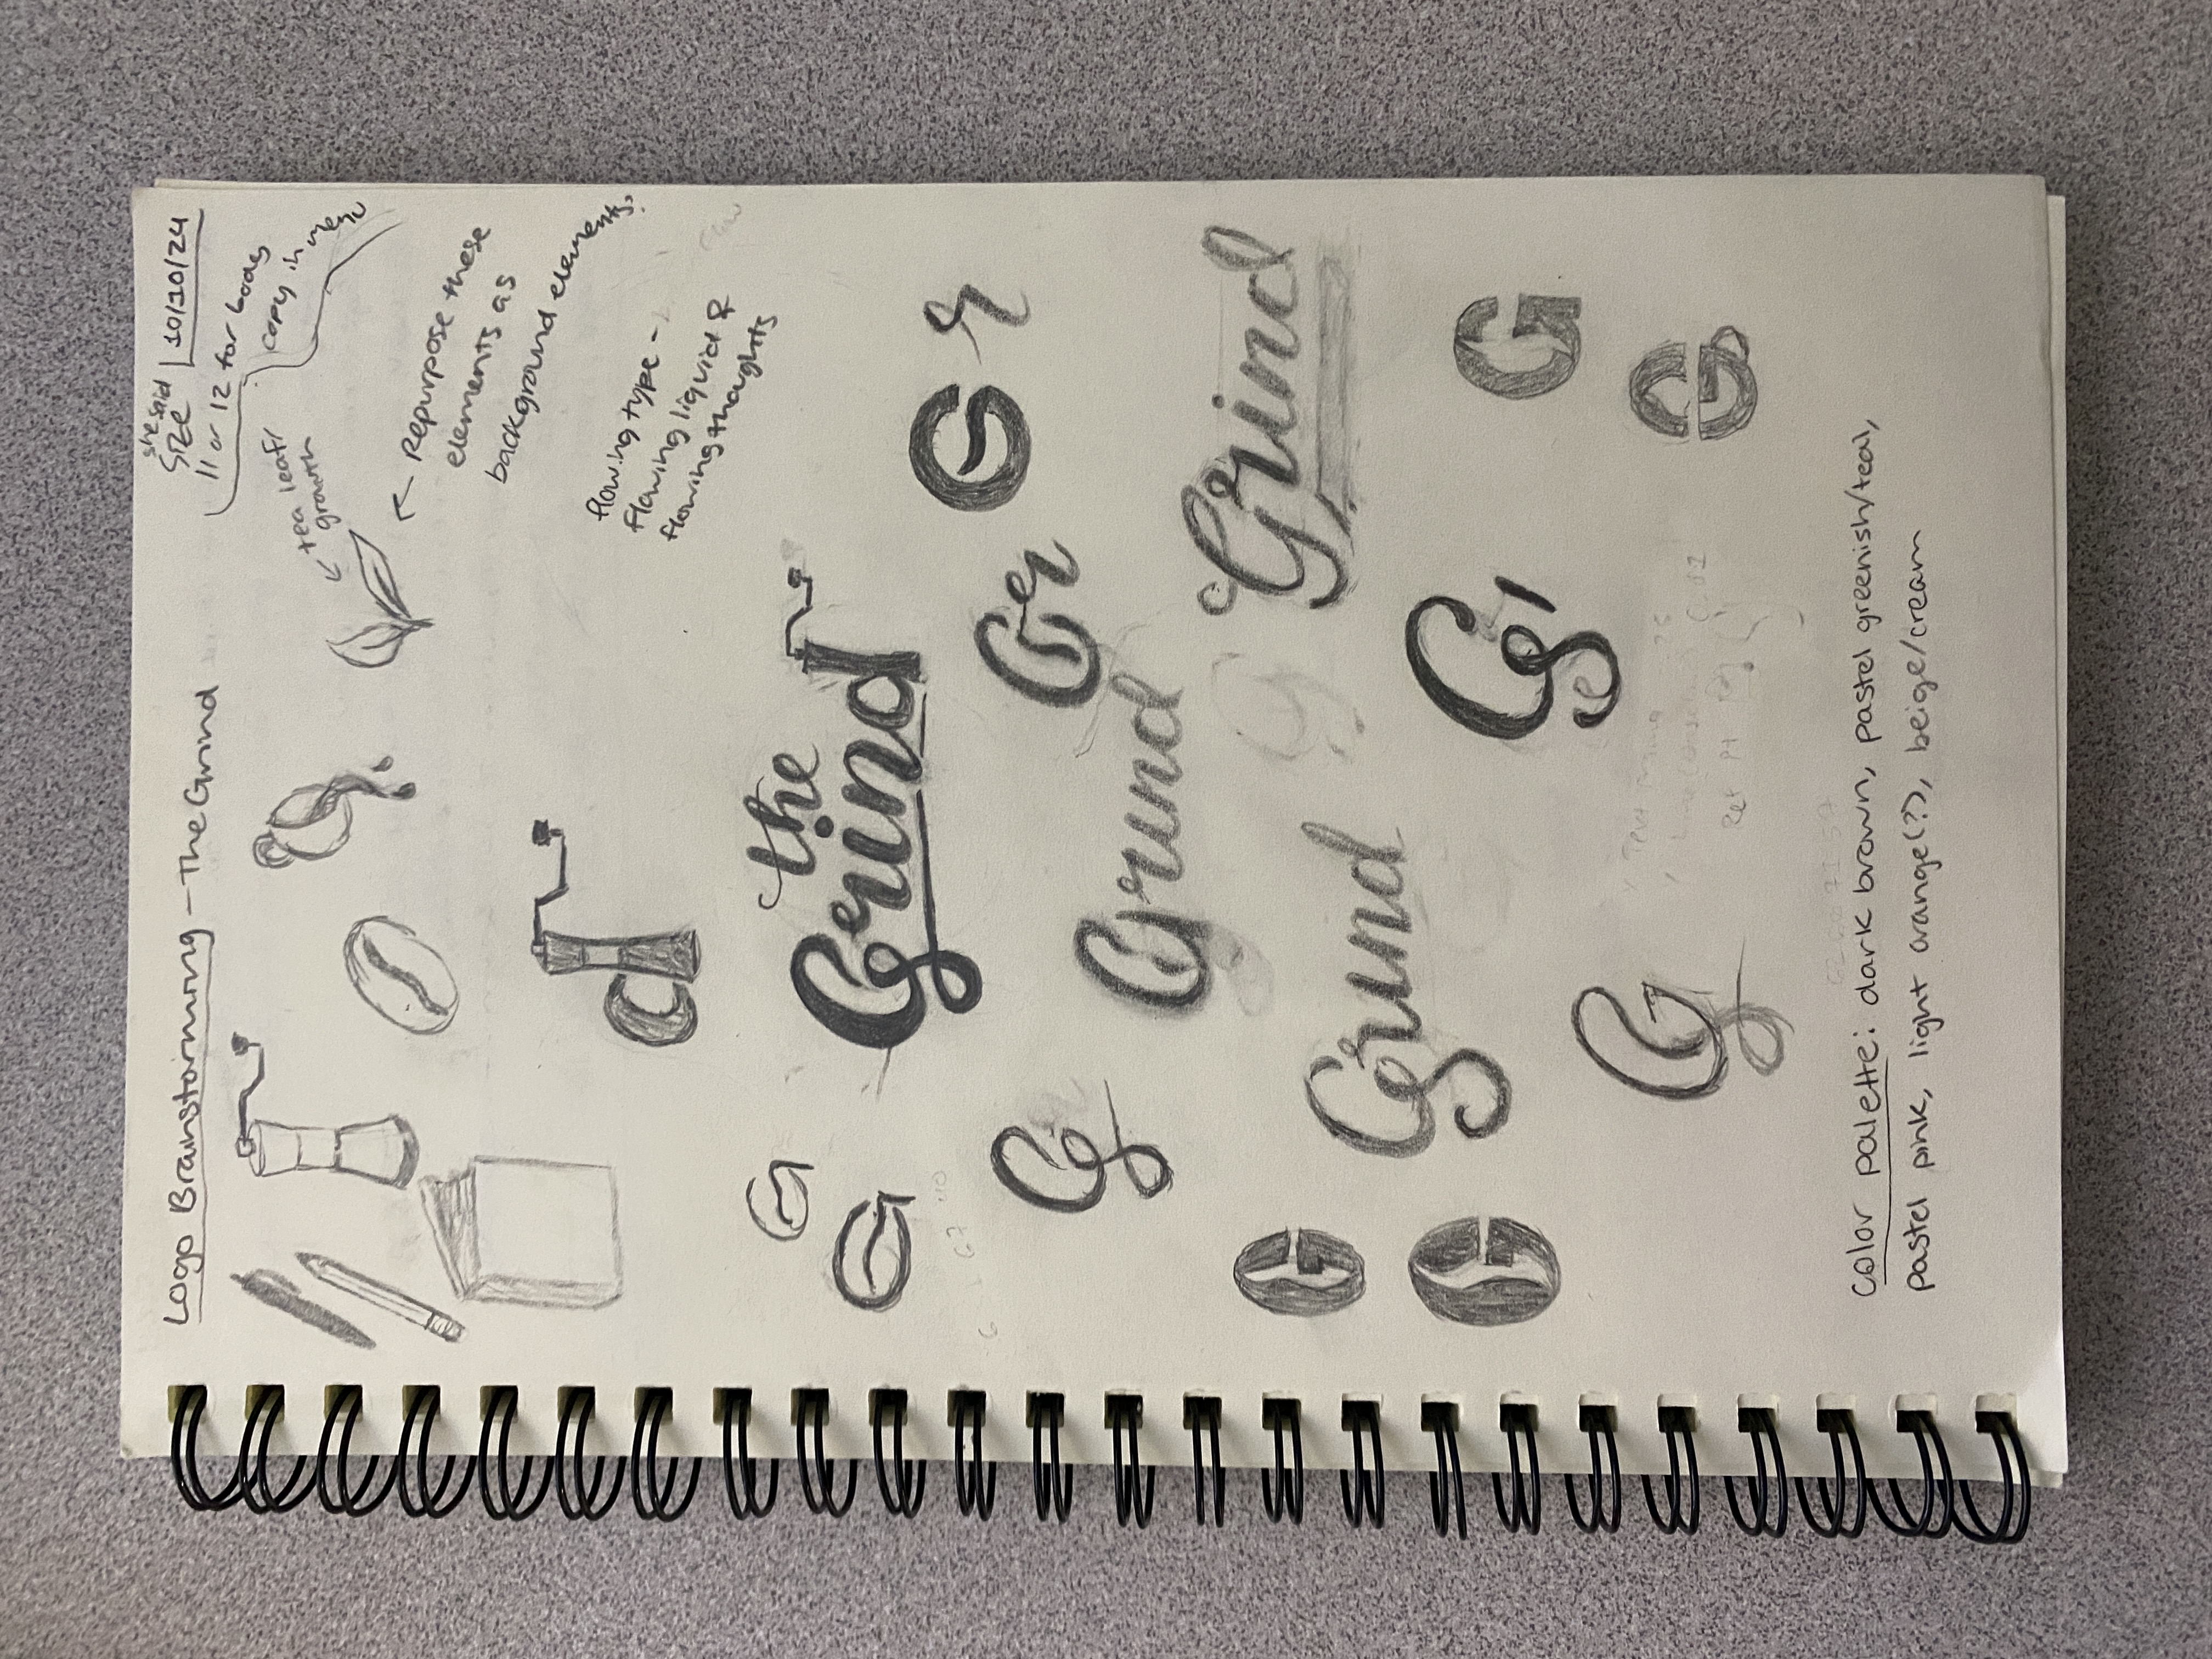 Logo Brainstorming - The Grind
she said
Size
10/10/24
11 or 12 for body
copy in menu
tea leaf/
growth
Repurpose these
elements as
background elements?
flowing type -
flowing liquid &
flowing thoughts
d
G
the
Grind
G
G r
Gr
G
Grind
Grind
G
Grind
G
G
G
G
G
Ref Pt
color palette: dark brown, pastel greenish/teal,
pastel pink, light orange(?), beige/cream